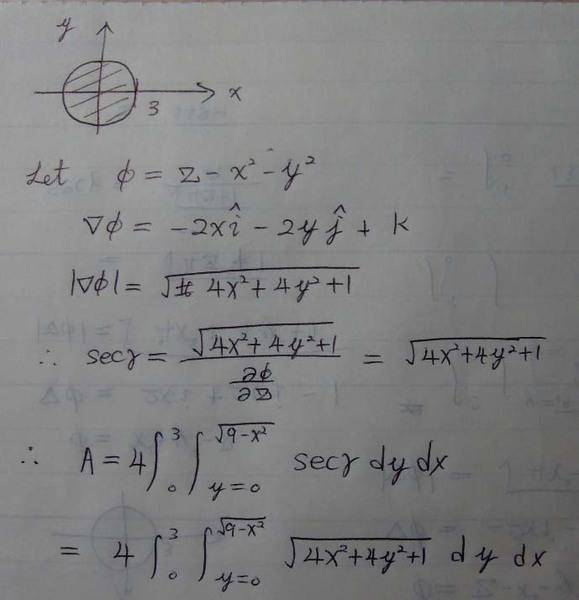 y
x
3
Let φ = z - x² - y²
∇φ = -2x î - 2y ĵ + k
|∇φ| = √(4x² + 4y² + 1)
∴ secγ = √(4x² + 4y² + 1) / (∂φ/∂z) = √(4x² + 4y² + 1)
∴ A = 4 ∫₀³ ∫_{y=0}^{√(9-x²)} secγ dy dx
= 4 ∫₀³ ∫_{y=0}^{√(9-x²)} √(4x² + 4y² + 1) dy dx